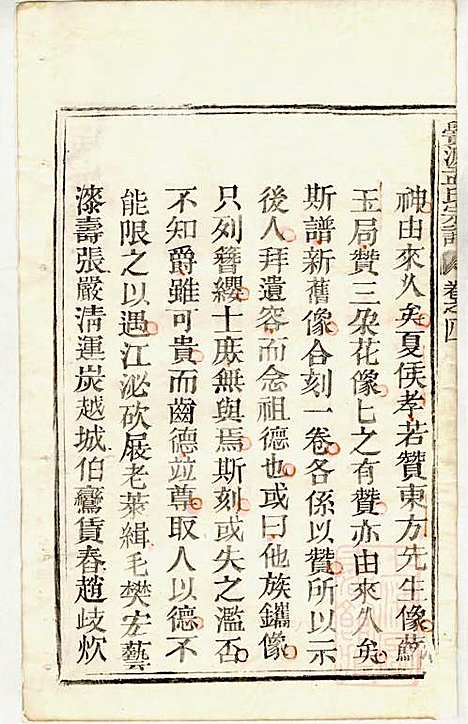 氏宗譜 卷之四
神由來久矣夏侯孝若贊東方先生像蘇
玉局贊三朵花像上之有贊亦由來久矣
斯譜新舊像合刻一卷各係以贊所以示
後人拜遺容而念祖德也或曰他族鐫像
只列簪纓士庶無與焉斯刻或失之濫否
不知爵雖可貴而齒德竝尊取人以德不
能限之以遇江泌砍屐老萊緝毛樊宏藝
漆壽張嚴淸運炭越城伯鸞賃春趙歧炊